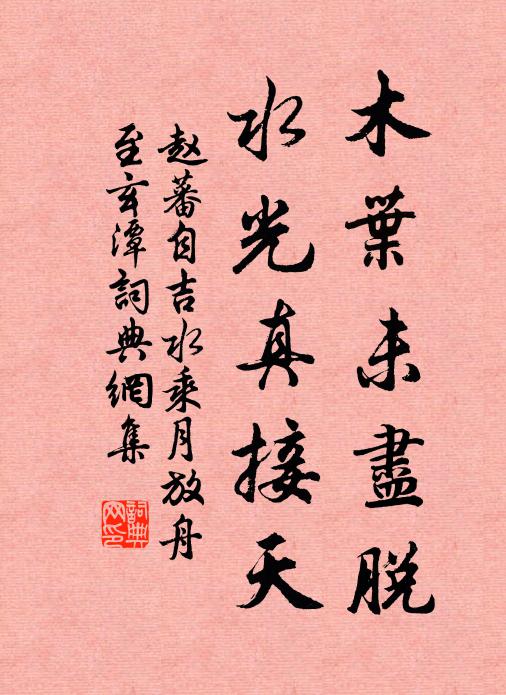 木葉未盡脱
水光真接天
赵蕃自吉水乘月放舟
至玄潭詞典網集
詞典
网印